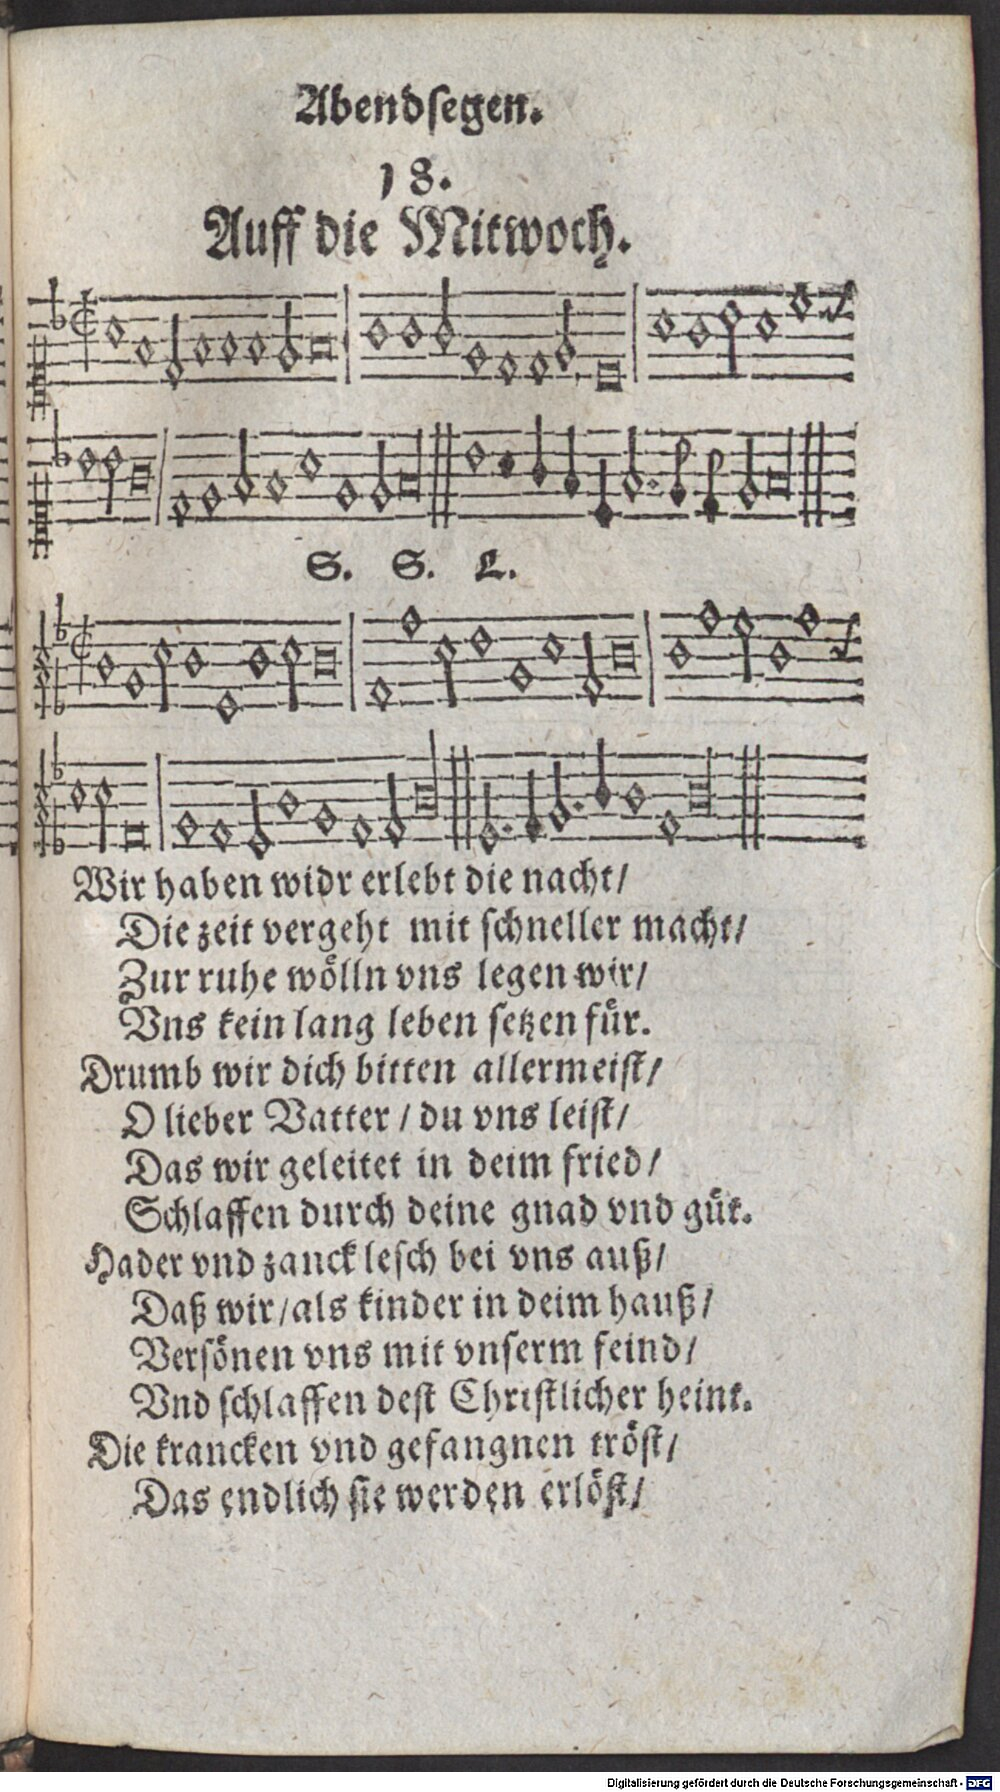 Abendſegen.
18.
Auff die Mitwoch.
S. S. L.
Wir haben widr erlebt die nacht/
Die zeit vergeht mit ſchneller macht/
Zur ruhe wölln vns legen wir/
Vns kein lang leben ſetzen für.
Drumb wir dich bitten allermeiſt/
O lieber Vatter / du vns leiſt/
Das wir geleitet in deim fried/
Schlaffen durch deine gnad vnd güt.
Hader vnd zanck leſch bei vns auß/
Daß wir/als kinder in deim hauß/
Verſönen vns mit vnſerm feind/
Vnd ſchlaffen deſt Chriſtlicher heint.
Die krancken vnd gefangnen tröſt/
Das endlich ſie werden erlöſt/
Digitalisierung gefördert durch die Deutsche Forschungsgemeinschaft - DFG